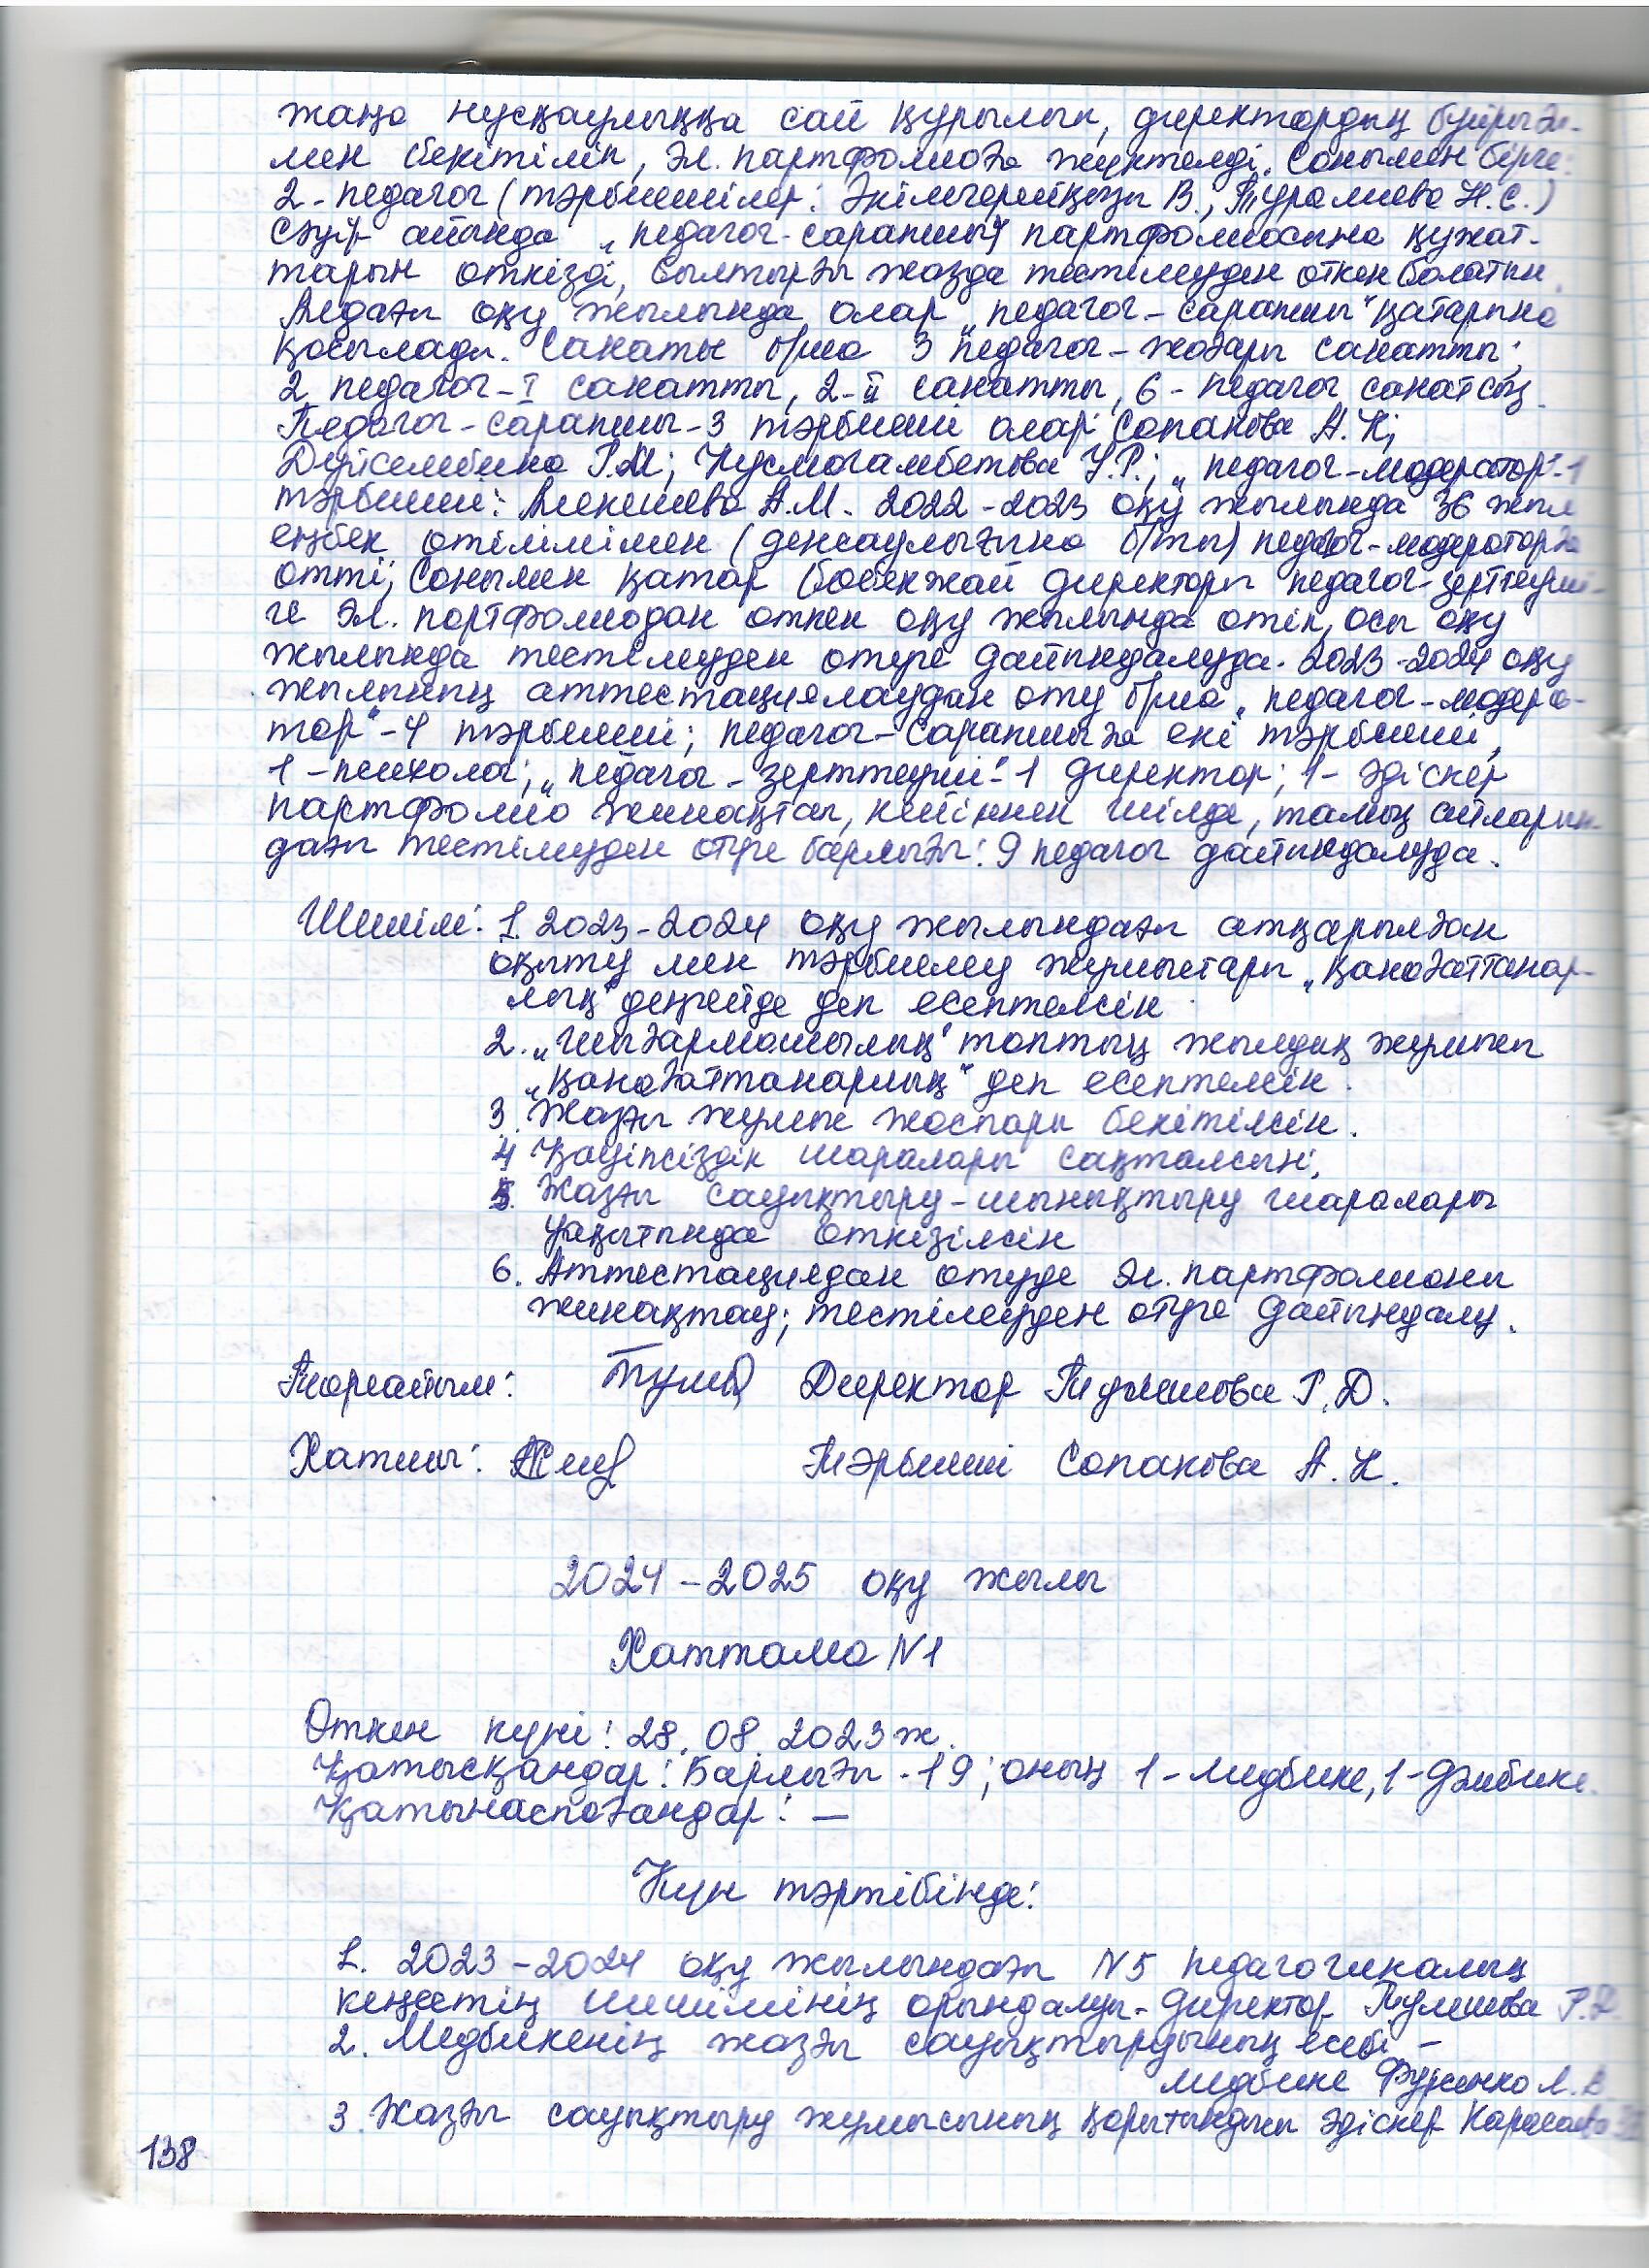 жаңа нұсқаулыққа сай құрылып, директордың бұйрығы-
мен бекітіліп, эл. партфолиоға жүктелді. Сонымен бірге:
2-педагог (тәрбиешілер: Әкімгерейқызы В., Туралиева Н.С.)
сәуір айында „педагог-сарапшы" партфолиосына құжат-
тарын өткізді, былтырғы жазда тестілеуден өткен болатын.
Алдағы оқу жылында олар „педагог-сарапшы" қатарына
қосылады. Санаты б/ша 3 педагог-жоғары санатты;
2 педагог-I санатты, 2-II санатты, 6-педагог санатсыз.
Педагог-сарапшы-3 тәрбиеші олар: Сопанова А.К;
Дүйсембина Г.М; Нусмогамбетова У.Р.; „педагог-модератор"-1
тәрбиеші: Алекешева А.М. 2022-2023 оқу жылында 36 жыл
еңбек өтілімімен (денсаулығына б/ты) педагог-модераторға
өтті; Сонымен қатар бөбекжай директоры педагог-зерттеуші-
ге эл. портфолиодан өткен оқу жылында өтіп, осы оқу
жылында тестілеуден өтуге дайындалуда. 2023-2024 оқу
жылының аттестациялаудан өту б/ша „педагог-модера-
тор"-4 тәрбиеші; педагог-сарапшыға екі тәрбиеші,
1-психолог; „педагог-зерттеуші"-1 директор; 1-әдіскер
партфолио жинақтап, кейіннен шілде, тамыз айларын-
дағы тестілеуден өтуге барлығы: 9 педагог дайындалуда.
Шешім: 1. 2023-2024 оқу жылындағы атқарылған
оқыту мен тәрбиелеу жұмыстары „қанағаттанар-
лық" деңгейде деп есептелсін
2. „Шығармашылық" топтың жылдық жұмысы
„қанағаттанарлық" деп есептелсін.
3. Жазғы жұмыс жоспары бекітілсін.
4 Қауіпсіздік шаралары сақталсын;
5. Жазғы сауықтыру-шынықтыру шаралары
уақытында өткізілсін
6. Аттестациядан өтуде эл. партфолионы
жинақтау; тестілеуден өтуге дайындалу.
Төрағайым: Директор Тулешова Г.Д.
Хатшы: Тәрбиеші Сопанова А.К.
2024-2025 оқу жылы
Хаттама N1
Өткен күні: 28.08.2023ж.
Қатысқандар: Барлығы-19; оның 1-медбике, 1-дәмбике.
Қатынаспағандар: —
Күн тәртібінде:
1. 2023-2024 оқу жылындағы N5 педагогикалық
кеңестің шешімінің орындалуы-директор Тулешова Г.Д.
2. Медбикенің жазғы сауықтырудының есебі –
медбике Фурсенко Л.В.
3. Жазғы сауықтыру жұмысының қорытындысы әдіскер
138